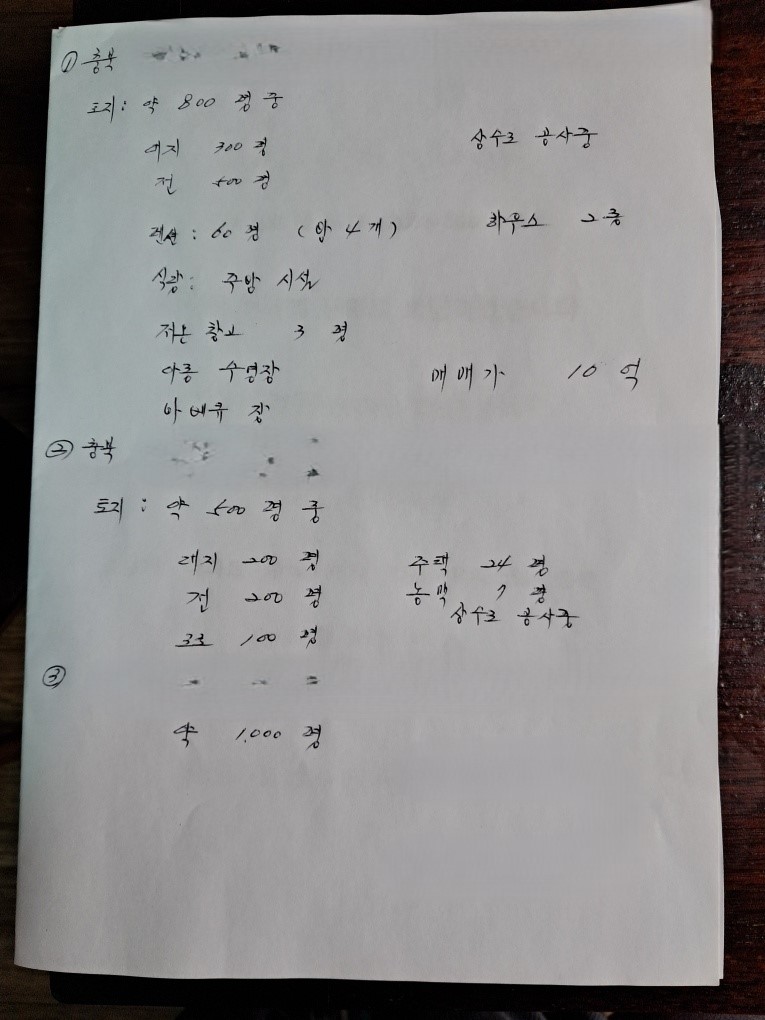 ① 충북
토지: 약 800 평 중
대지 300 평 상수도 공사중
전 500 평
펜션: 60 평 (방 4개) 하우스 2동
식당: 주방 시설
저온 창고 3 평
아동 수영장 매매가 10 억
바베큐 장
② 충북
토지: 약 500 평 중
대지 200 평 주택 24 평
전 200 평 농막 7 평
상수도 공사중
도로 100 평
③
약 1,000 평